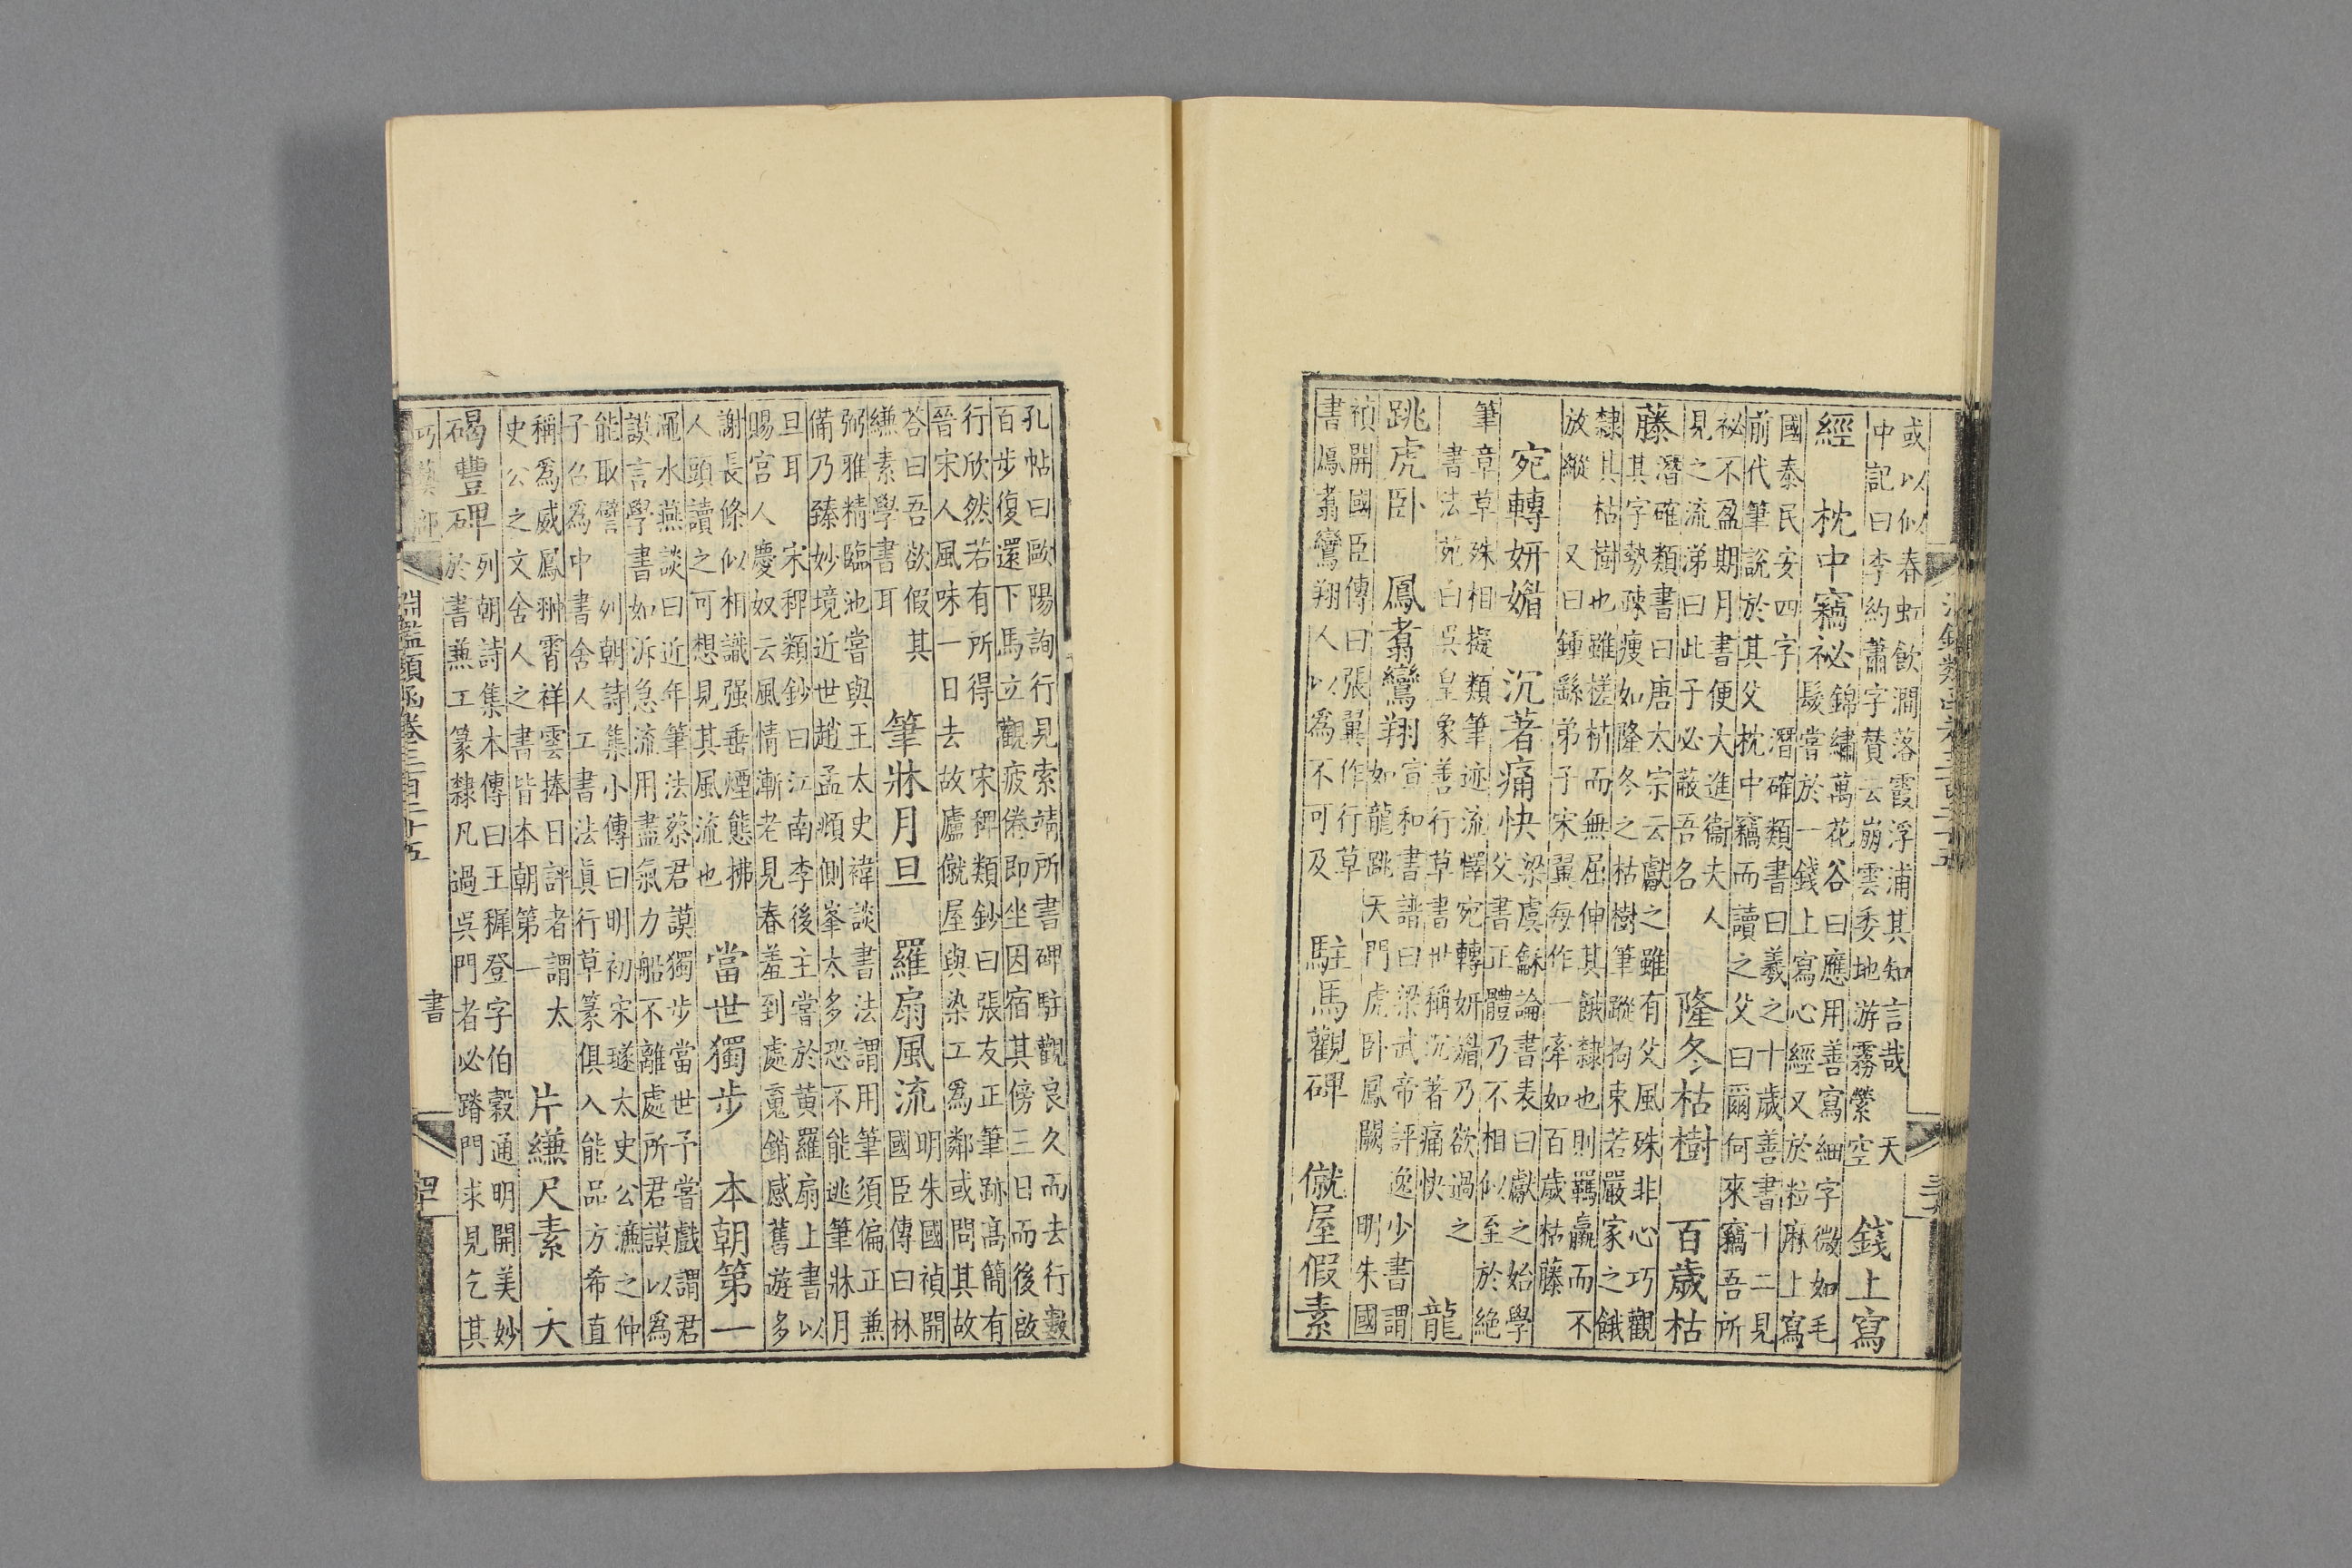 或以似春虹飲澗落霞浮浦其知言哉　天
中記曰李約蕭字贊云崩雲委地游霧縈空
錢上寫
經　枕中竊祕
錦繡萬花谷曰應用善寫細字微如毛
髮嘗於一錢上寫心經又於粒麻上寫
國泰民安四字　潛確類書曰羲之十歲善書十二見
前代筆說於其父枕中竊而讀之父曰爾何來竊吾所
祕不盈期月書便大進衞夫人
見之流涕曰此子必蔽吾名
隆冬枯樹　百歲枯
藤
潛確類書曰唐太宗云獻之雖有父風殊非心巧觀
其字勢疎瘦如隆冬之枯樹筆蹤拘束若嚴家之餓
隸其枯樹也雖槎枿而無屈伸其餓隸也則羈羸而不
放縱　又曰鍾繇弟子宋翼每作一牽如百歲枯藤
宛轉妍媚　沉著痛快
梁虞龢論書表曰獻之始學
父書正體乃不相似至於絕
筆章草殊相擬類筆迹流懌宛轉妍媚乃欲過之
書法苑曰吳皇象善行草書世稱沉著痛快
龍
跳虎卧　鳳翥鸞翔
宣和書譜曰梁武帝評逸少書謂
如龍跳天門虎卧鳳闕　明朱國
禎開國臣傳曰張翼作行草
書鳳翥鸞翔人以爲不可及
駐馬觀碑　僦屋假素
孔帖曰歐陽詢行見索靖所書碑駐觀良久而去行數
百步復還下馬立觀疲倦即坐因宿其傍三日而後啟
行欣然若有所得　宋稗類鈔曰張友正筆跡高簡有
晉宋人風味一日去故廬僦屋與染工爲鄰或問其故
荅曰吾欲假其
縑素學書耳
筆牀月旦　羅扇風流
明朱國禎開
國臣傳曰林
弼雅精臨池嘗與王太史褘談書法謂用筆須偏正兼
備乃臻妙境近世趙孟頫側峯太多恐不能逃筆牀月
旦耳　宋稗類鈔曰江南李後主嘗於黃羅扇上書以
賜宮人慶奴云風情漸老見春羞到處魂銷感舊遊多
謝長條似相識强垂煙態拂
人頭讀之可想見其風流也
當世獨步　本朝第一
澠水燕談曰近年筆法蔡君謨獨步當世予嘗戲謂君
謨言學書如泝急流用盡氣力船不離處所君謨以爲
能取譬　列朝詩集小傳曰明初宋璲太史公濂之仲
子召爲中書舍人工書法眞行草篆俱入能品方希直
稱爲威鳳翀霄祥雲捧日評者謂太
史公之文舍人之書皆本朝第一
片縑尺素　大
碣豐碑
列朝詩集本傳曰王穉登字伯穀通明開美妙
於書兼工篆隸凡過吳門者必踏門求見乞其
淵鑑類函卷三百二十五
書